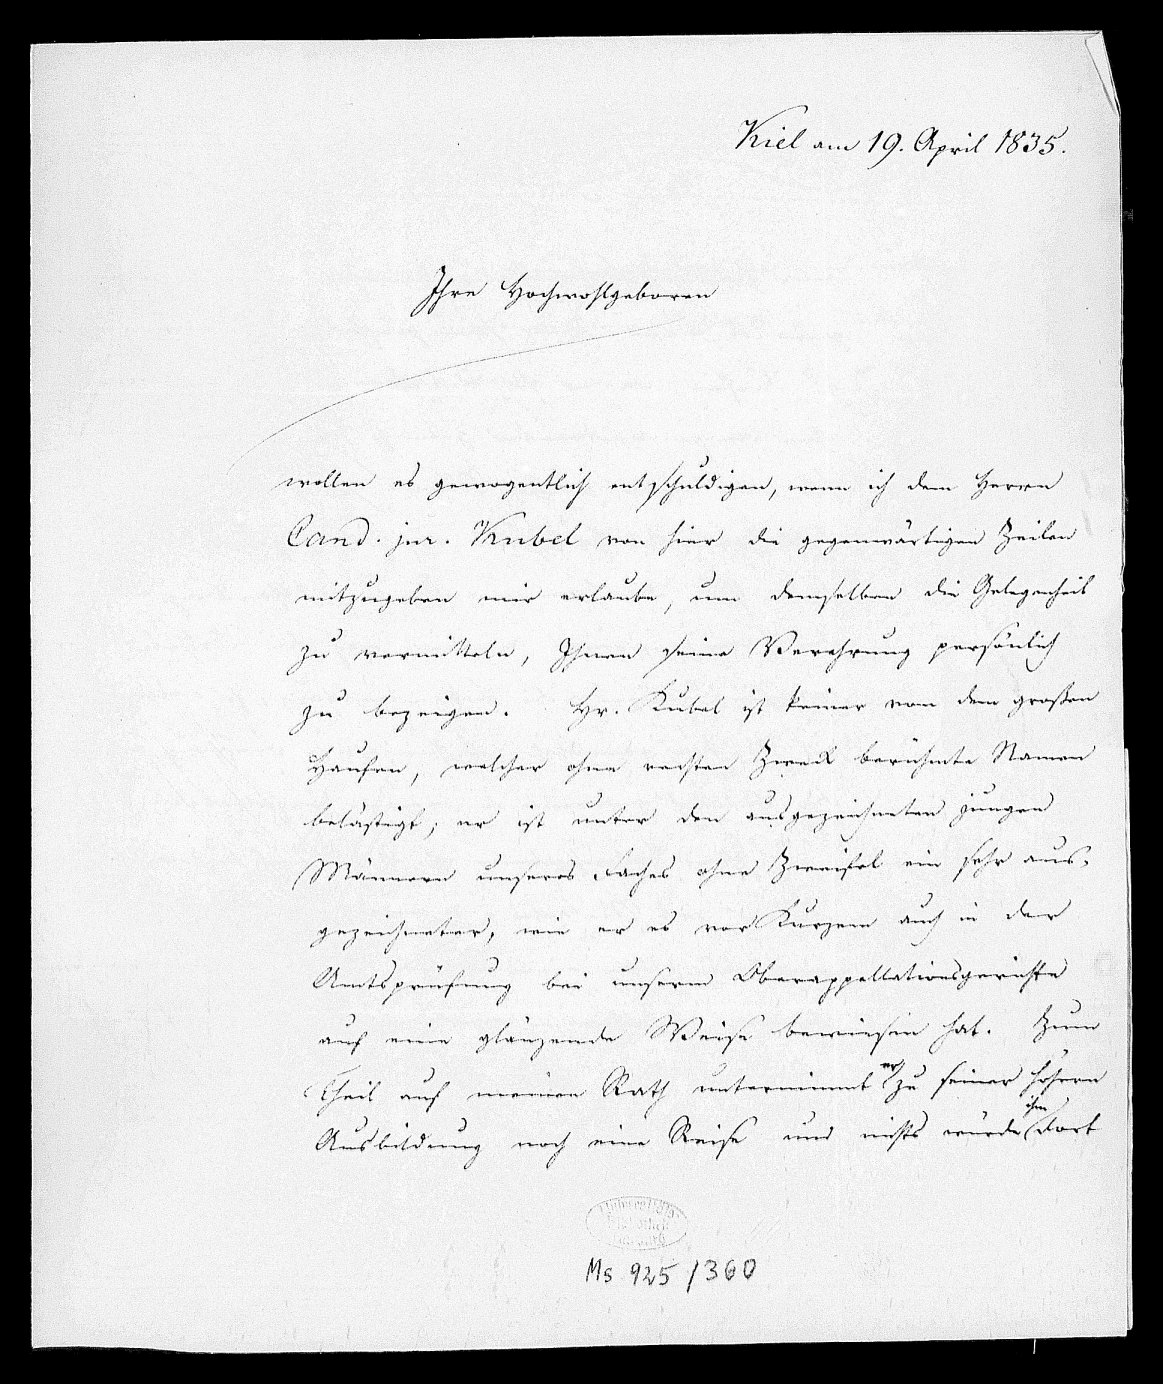 Kiel am 19. April 1835.
Ihre Hochwohlgeboren
wollen es gewogentlich entschuldigen, wenn ich dem Herrn
Cand. jur. Kubel von hier die gegenwärtigen Zeilen
mitzugeben mir erlaube, um demselben die Gelegenheit
zu vermitteln, Ihnen seine Verehrung persönlich
zu bezeigen. Hr. Kubel ist keiner von dem großen
Haufen, welcher ohne rechten Zweck berühmte Namen
belästigt; er ist unter den ausgezeichneten jungen
Männern unseres Faches ohne Zweifel ein sehr aus-
gezeichneter, wie er es vor Kurzem auch in der
Amtsprüfung bei unserm Oberappellationsgerichte
auf eine glänzende Weise bewiesen hat. Zum
Theil auf meinen Rath unternimmt er zu seiner höhern
Ausbildung noch eine Reise und nichts würde ihm dort
Ms 925/360